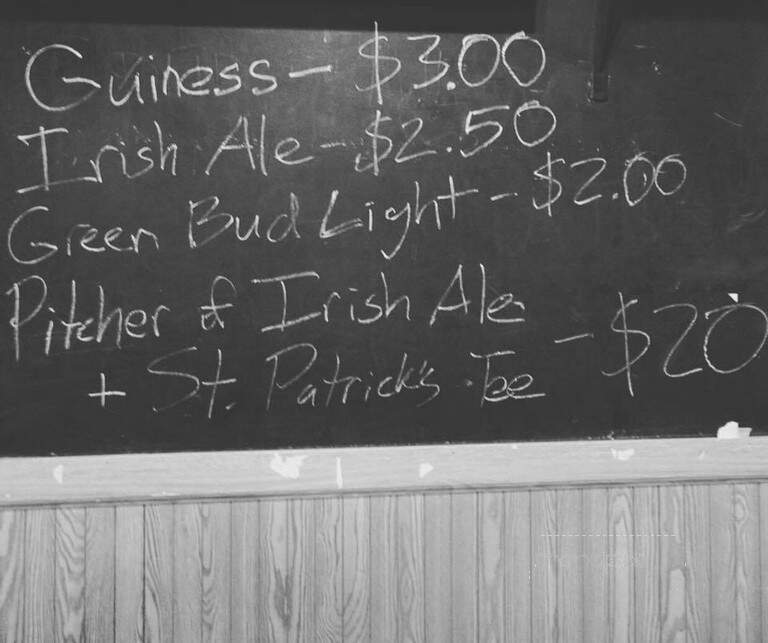 Guiness - $3.00
Irish Ale - $2.50
Green Bud Light - $2.00
Pitcher of Irish Ale
+ St. Patrick's Tee - $20